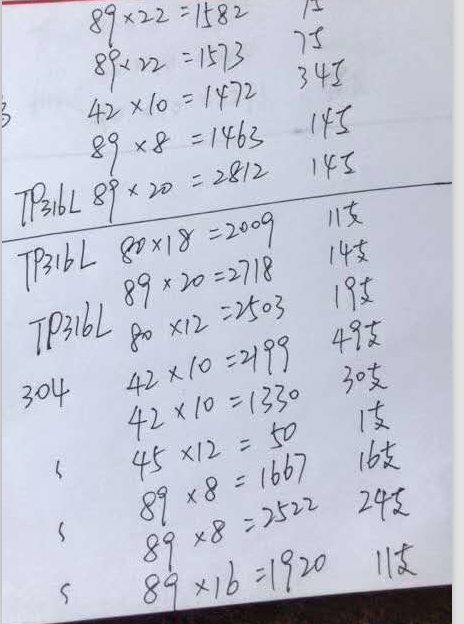 89×22=1582
89×22=1573 7支
42×10=1472 34支
89×8=1463 14支
TP316L 89×20=2812 14支
TP316L 80×18=2009 11支
89×20=2718 14支
TP316L 80×12=2503 19支
304 42×10=2199 49支
42×10=1330 30支
45×12=50 1支
89×8=1667 16支
89×8=2522 24支
89×16=1920 11支